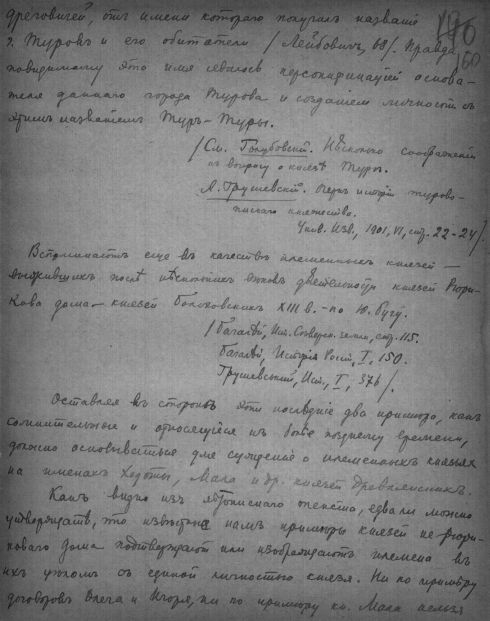 дреговичей, отъ имени котораго получилъ названіе
г. Туровъ и его обитатели /Лейбовичъ, 68/. Правда
повидимому это имя явилось персонификаціей основа-
теля даннаго города Турова и созданіемъ личности съ
этимъ названіемъ Туръ-Туры.
/См. Голубовскій. Нѣсколько соображеній
къ вопросу о князѣ Турѣ.
А. Грушевскій. Очеркъ исторіи турово-
пинскаго княжества.
Унив. Изв., 1901, VI, стр. 22-24/.
Вспоминаютъ еще въ качествѣ племенныхъ князей —
выжившихъ послѣ нѣсколькихъ вѣковъ дѣятельности князей Рюри-
кова дома — князей Болоховскихъ XIII в. — по Ю. Бугу.
/Багалѣй, Ист. Сѣверск. земли, стр. 115.
Багалѣй, Исторія Россіи, I, 150.
Грушевський, Ист., I, 376/.
Оставляя въ сторонѣ эти послѣдніе два примѣра, какъ
сомнительные и относящіеся къ болѣе позднему времени,
должно основываться для сужденія о племенныхъ князьяхъ
на именахъ Ходоты, Мала и др. князей Древлянскихъ.
Какъ видно изъ лѣтописнаго текста, едва ли можно
утверждать, что извѣстные намъ примѣры князей не рюри-
коваго дома подтверждаютъ или изображаютъ племена въ
ихъ цѣломъ съ единой личностью князя. Ни по примѣру
договоровъ Олега и Игоря, ни по примѣру кн. Мала нельзя
160